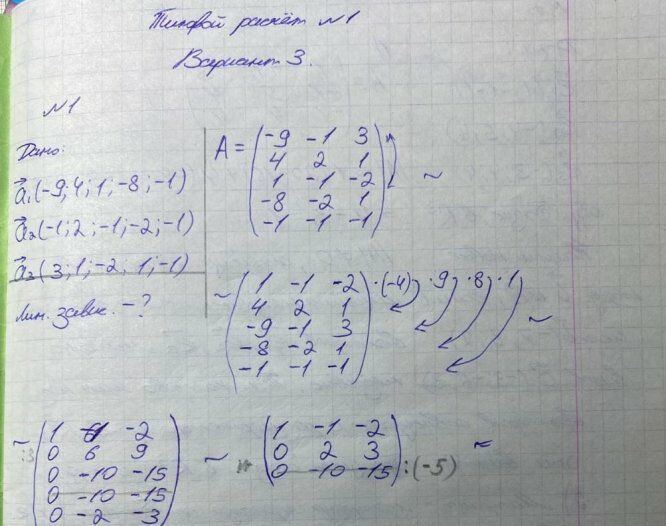 Типовой расчёт №1
Вариант 3.
№1
Дано:
a⃗₁(-9; 4; 1; -8; -1)
a⃗₂(-1; 2; -1; -2; -1)
a⃗₃(3; 1; -2; 1; -1)
Лин. завис. - ?
A = (-9 -1 3
4 2 1
1 -1 -2
-8 -2 1
-1 -1 -1) ~
~ (1 -1 -2) ·(-4) ·9 ·8 ·1
4 2 1
-9 -1 3 ~
-8 -2 1
-1 -1 -1)
~ (1 -1 -2
:3 0 6 9
0 -10 -15
0 -10 -15
0 -2 -3)
~ (1 -1 -2
0 2 3
0 -10 -15) :(-5) ~